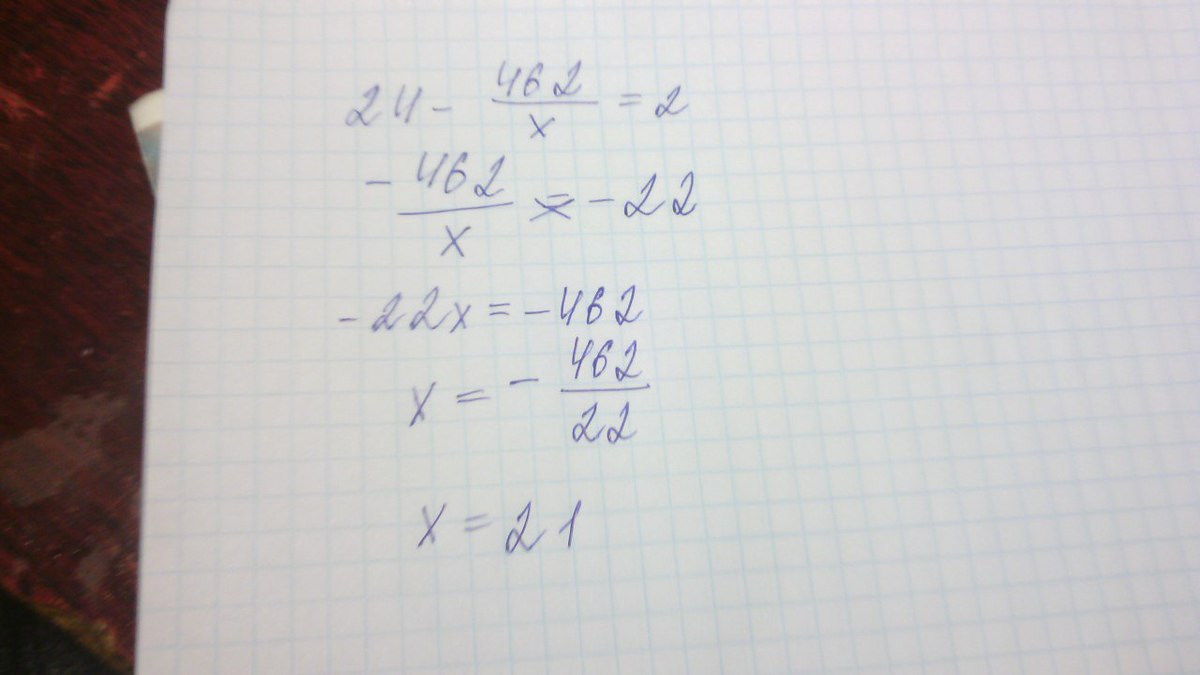 24 - 462/x = 2
- 462/x = -22
-22x = -462
x = - 462/22
x = 21